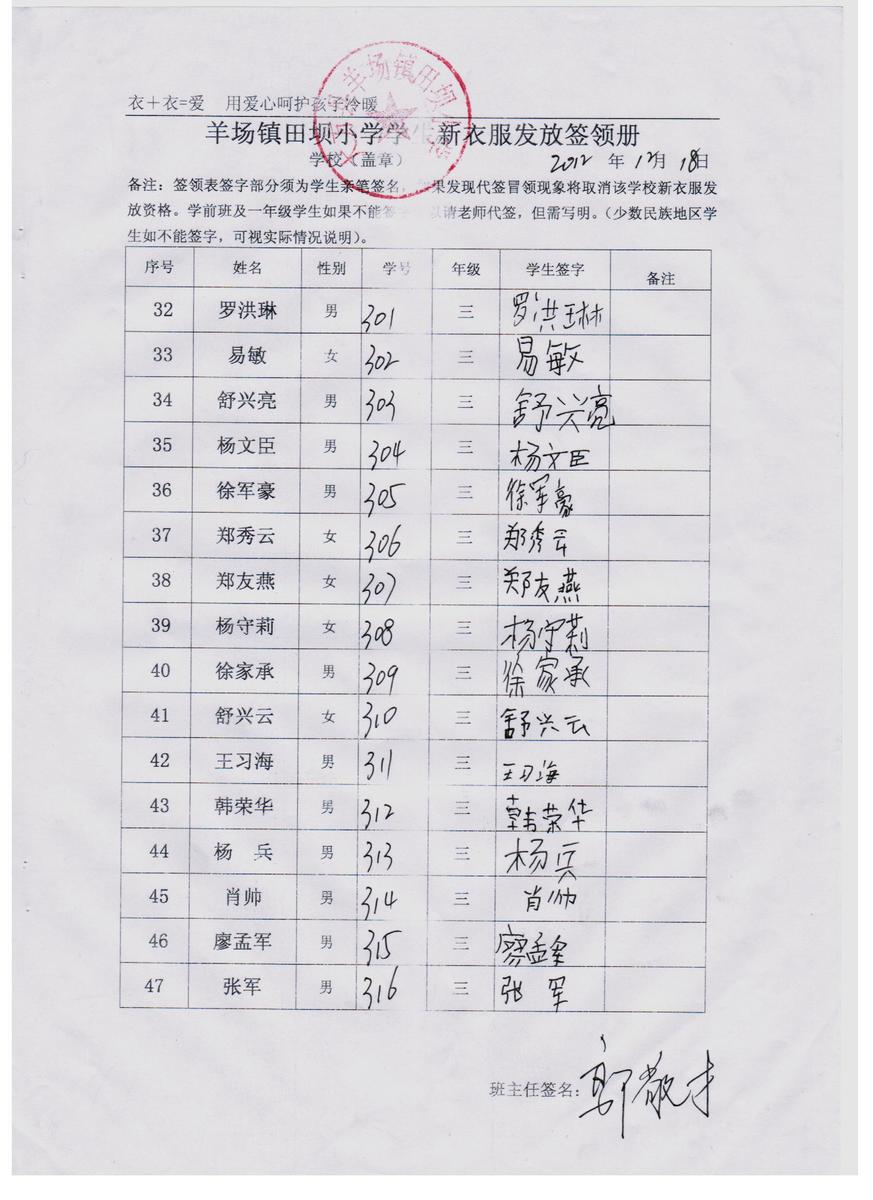 衣+衣=爱 用爱心呵护孩子冷暖
羊场镇田坝小学学生新衣服发放签领册
学校（盖章） 2012 年 12月 18日
备注：签领表签字部分须为学生亲笔签名，如果发现代签冒领现象将取消该学校新衣服发
放资格。学前班及一年级学生如果不能签字可以请老师代签，但需写明。（少数民族地区学
生如不能签字，可视实际情况说明）。
序号 姓名 性别 学号 年级 学生签字 备注
32 罗洪琳 男 301 三 罗洪琳
33 易敏 女 302 三 易敏
34 舒兴亮 男 303 三 舒兴亮
35 杨文臣 男 304 三 杨文臣
36 徐军豪 男 305 三 徐军豪
37 郑秀云 女 306 三 郑秀云
38 郑友燕 女 307 三 郑友燕
39 杨守莉 女 308 三 杨守莉
40 徐家承 男 309 三 徐家承
41 舒兴云 女 310 三 舒兴云
42 王习海 男 311 三 王习海
43 韩荣华 男 312 三 韩荣华
44 杨 兵 男 313 三 杨兵
45 肖帅 男 314 三 肖帅
46 廖孟军 男 315 三 廖孟军
47 张军 男 316 三 张 军
班主任签名：郭敬才
羊场镇田坝小学